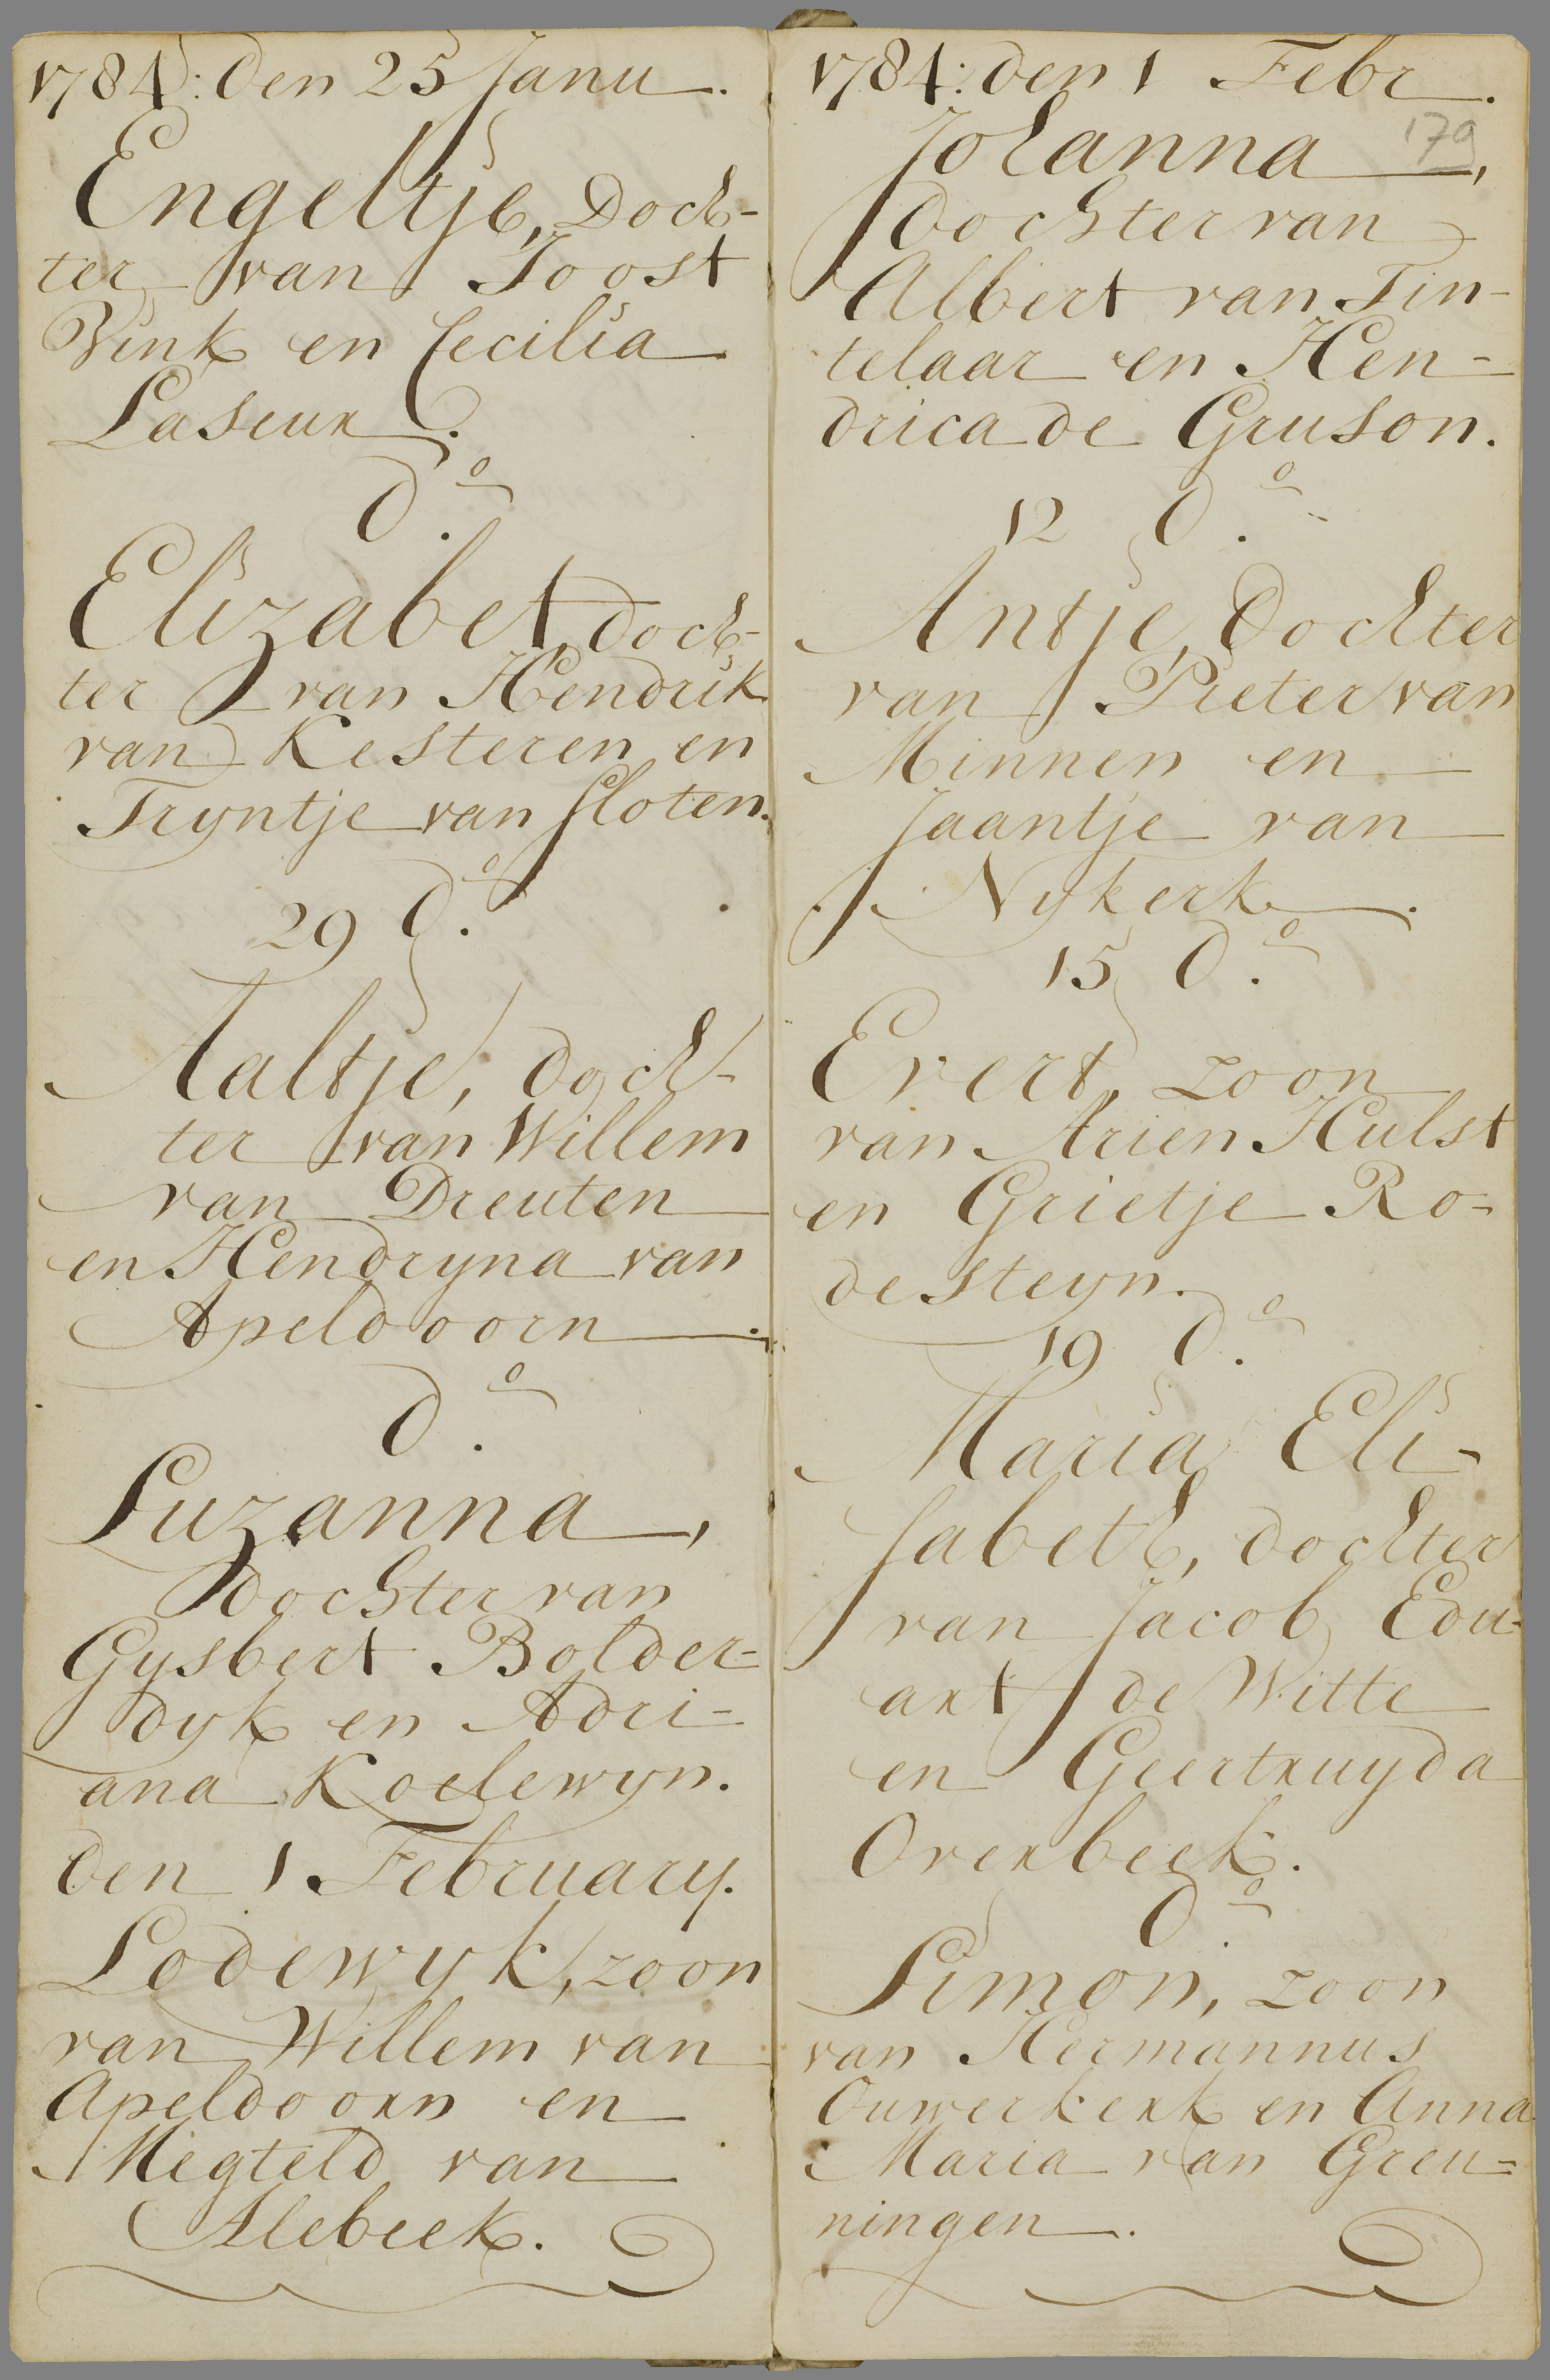 1784: den 25 Janu.
Engeltje, Doch-
ter van Joost
Vink en Cecilia
Laseur.
do.
Elizabet, doch-
ter van Hendrik
van Kesteren en
Tryntje van Sloten.
29 do.
Aaltje, doch-
ter van Willem
van Dreuten
en Hendryna van
Apeldoorn.
do.
Suzanna,
dochter van
Gysbert Bolder=
dyk en Adri=
ana Koelewyn.
den 1 February.
Lodewyk, zoon
van Willem van
Apeldoorn en
Megteld van
Slebeek.
1784: den 1 Febr.
179
Johanna,
dochter van
Albert van Tin-
telaar en Hen=
drica de Gruson.
12 do.
Antje, dochter
van Pieter van
Minnen en
Jaantje van
Nykerk.
15 do.
Evert, zoon
van Arien Hulst
en Grietje Ro=
desteyn.
19 do.
Maria Eli-
sabeth, dochter
van Jacob Edu=
art de Witte
en Geertruyda
Overbeek.
do.
Simon, zoon
van Hermannus
Ouwerkerk en Anna
Maria van Greu=
ningen.